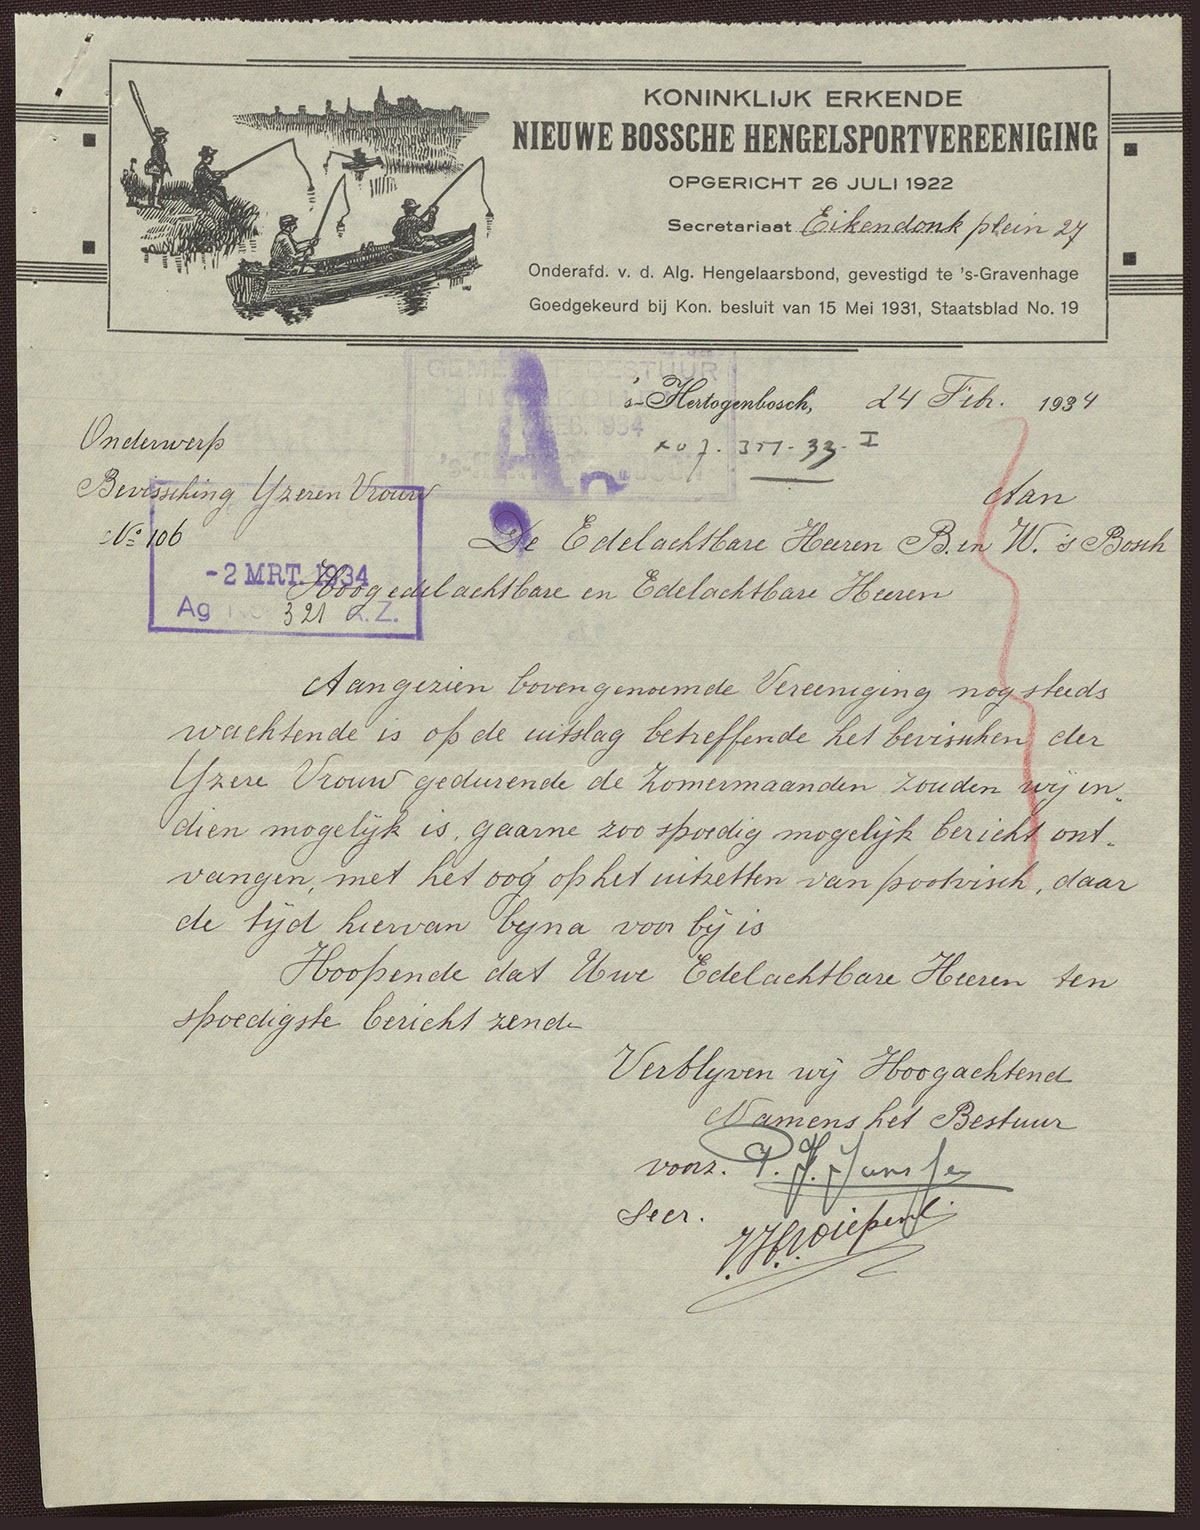 KONINKLIJK ERKENDE
NIEUWE BOSSCHE HENGELSPORTVEREENIGING
OPGERICHT 26 JULI 1922
Secretariaat Eikendonkplein 27
Onderafd. v. d. Alg. Hengelaarsbond, gevestigd te 's-Gravenhage
Goedgekeurd bij Kon. besluit van 15 Mei 1931, Staatsblad No. 19
GEMEENTEBESTUUR
's-Hertogenbosch, 24 Febr. 1934
Onderwerp
Bevissching Yzeren Vrouw
No 106
-2 MRT. 1934
Ag No 321 A.Z.
A
Aan
De Edelachtbare Heeren B. en W. 's Bosch
Hoogedelachtbare en Edelachtbare Heeren
Aangezien bovengenoemde Vereeniging nog steeds
wachtende is op de uitslag betreffende het bevisschen der
Yzere Vrouw gedurende de Zomermaanden zouden wij in-
dien mogelijk is, gaarne zoo spoedig mogelijk bericht ont-
vangen, met het oog op het uitzetten van pootvisch, daar
de tijd hiervan byna voor bij is
Hoopende dat Uwe Edelachtbare Heeren ten
spoedigste bericht zende
Verblyven wij Hoogachtend
Namens het Bestuur
voorz. P. J. Janssen
Secr.